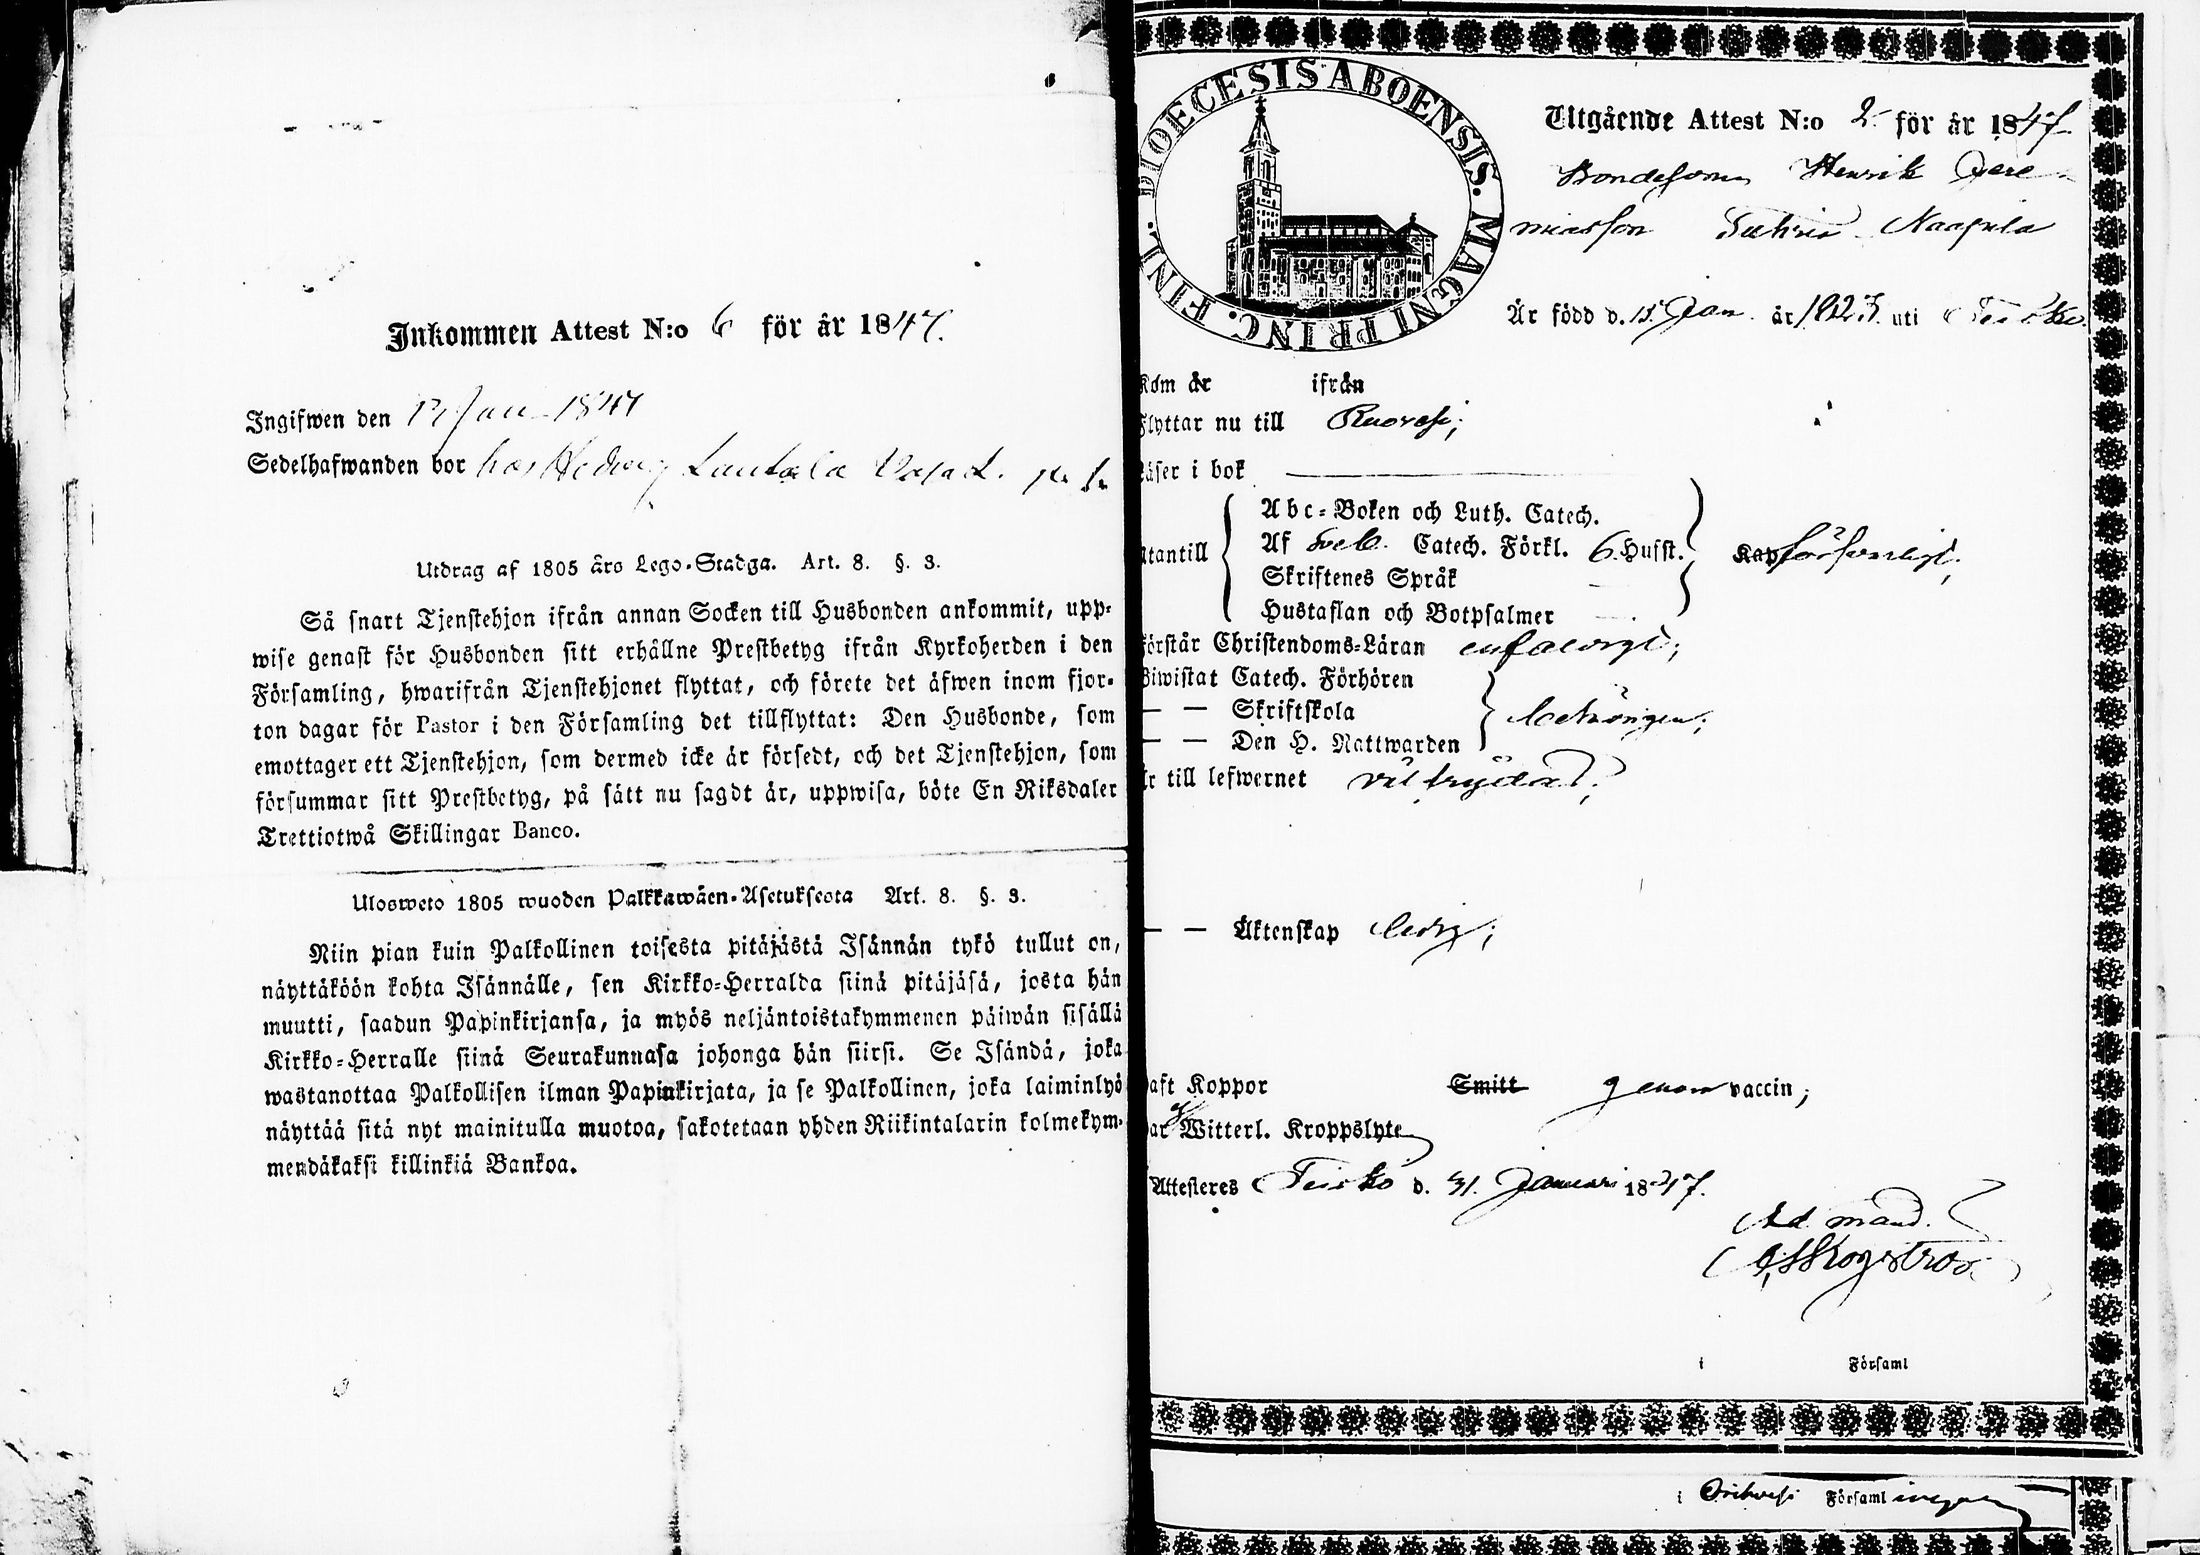 Inkommen Attest N:o 6 för år 1847.
Ingifwen den Jan 1847
Sedelhafwanden bor hos Hedvig Lautala
Utdrag af 1805 års Lego-Stadga. Art. 8. §. 3.
Så snart Tjenstehjon ifrån annan Socken till Husbonden ankommit, upp-
wise genast för Husbonden sitt erhållne Prestbetyg ifrån Kyrkoherden i den
Församling, hwarifrån Tjenstehjonet flyttat, och förete det äfwen inom fjor-
ton dagar för Pastor i den Församling det tillflyttat: Den Husbonde, som
emottager ett Tjenstehjon, som dermed icke är försedt, och det Tjenstehjon, som
försummar sitt Prestbetyg, på sätt nu sagdt är, uppwisa, böte En Riksdaler
Trettiotwå Skillingar Banco.
Ulosweto 1805 wuoden Palkkawäen-Asetuksesta Art. 8. §. 3.
Niin pian kuin Palkollinen toisesta pitäjästä Isännän tykö tullut on,
näyttäköön kohta Isännälle, sen Kirkko-Herralda siinä pitäjäsä, josta hän
muutti, saadun Papinkirjansa, ja myös neljäntoistakymmenen päiwän sisällä
Kirkko-Herralle siinä Seurakunnasa johonga hän siirsi. Se Isändä, joka
wastanottaa Palkollisen ilman Papinkirjata, ja se Palkollinen, joka laiminlyö
näyttää sitä nyt mainitulla muotoa, sakotetaan yhden Riikintalarin kolmekym-
mendäkaksi killinkiä Bankoa.
DIOECESIS ABOENSIS. MAGNI PRINC. FINL.
Utgående Attest N:o 2 för år 1847
Bondesonen Henrik Jere-
miasson Naappila
Är född d. 15 Jan. år 1823. uti Teisko.
Kom år ifrån
Flyttar nu till Ruovesi;
Läser i bok
Utantill
Abc-Boken och Luth. Catech.
Af Sveb. Catech. Förkl. 6 Hufst. Kap försvarligt;
Skriftenes Språk
Hustaflan och Botpsalmer
Förstår Christendoms-Läran enfaldigt;
Biwistat Catech. Förhören
— — Skriftskola behörigen;
— — Den H. Nattwarden
Är till lefwernet
— — Äktenskap ledig;
Haft Koppor Smitt genom vaccin;
Har Witterl. Kroppslyte
Attesteres Teisko d. 31. Januari 1847.
Ad mand.
i Församl
i Orihvesi Församl